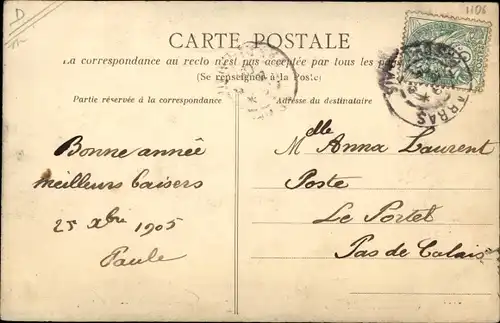 D
1106
CARTE POSTALE
La correspondance au recto n'est pas acceptée par tous les pays
(Se renseigner à la Poste)
Partie réservée à la correspondance
Adresse du destinataire
Bonne année
meilleurs baisers
25 Xbre 1905
Paule
Mdlle Anna Laurent
Poste
Le Portel
Pas de Calais
ARRAS